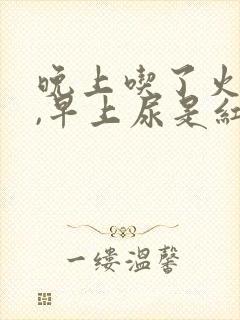 晚上喫了火
,早上尿是紅
一缕温馨